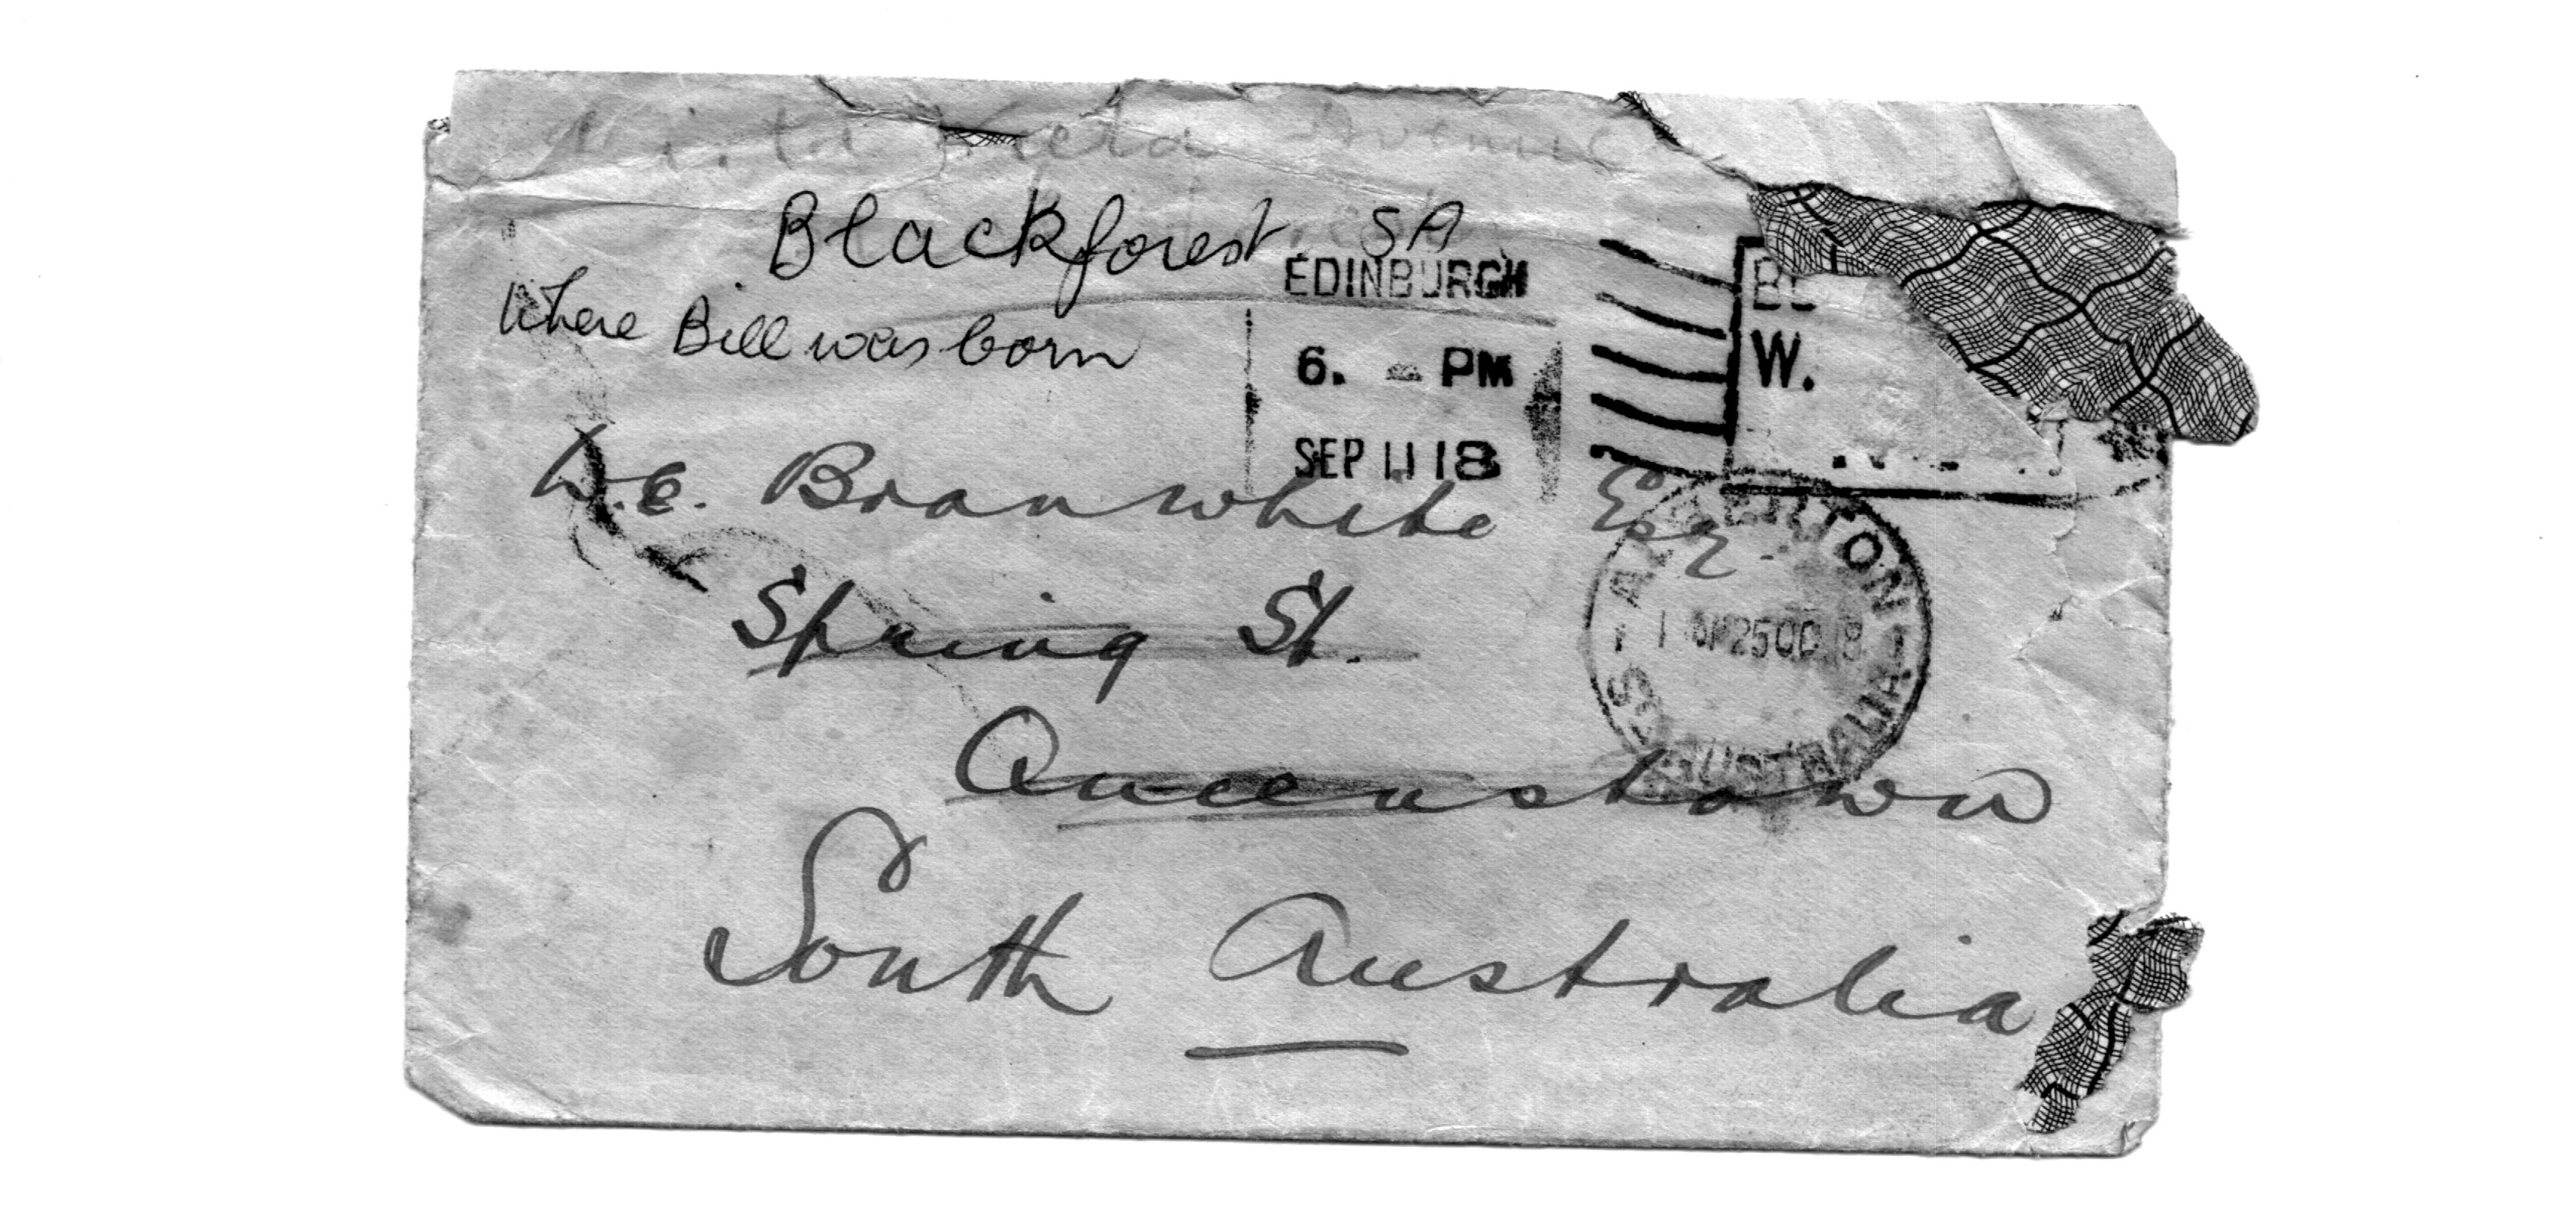 Avenue
Blackforest SA
Where Bill was born
EDINBURGH
6. - PM
SEP 11 18
BU
W.
W.E. Branwhite Esq.
Spring St.
Queenstown
South Australia
ALBERTON
25 OC 18
S. AUSTRALIA